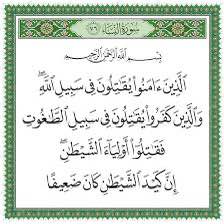 سورة النساء ٧٦
بِسْمِ اللَّهِ الرَّحْمَٰنِ الرَّحِيمِ
الَّذِينَ ءَامَنُوا۟ يُقَٰتِلُونَ فِى سَبِيلِ اللَّهِ ۖ
وَالَّذِينَ كَفَرُوا۟ يُقَٰتِلُونَ فِى سَبِيلِ الطَّٰغُوتِ
فَقَٰتِلُوٓا۟ أَوْلِيَآءَ الشَّيْطَٰنِ ۖ
إِنَّ كَيْدَ الشَّيْطَٰنِ كَانَ ضَعِيفًا